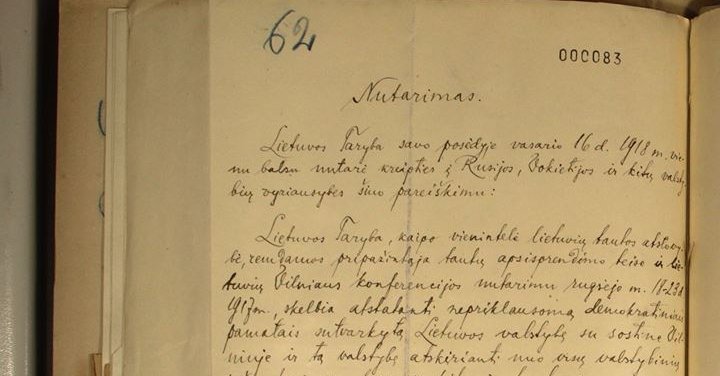 62
000083
Nutarimas.
Lietuvos Taryba savo posėdyje vasario 16 d. 1918 m. vie-
nu balsu nutarė kreipties į Rusijos, Vokietijos ir kitų valsty-
bių vyriausybes šiuo pareiškimu:
Lietuvos Taryba, kaipo vienintelė lietuvių tautos atstovy-
bė, remdamos pripažintąja tautų apsisprendimo teise ir lie-
tuvių Vilniaus konferencijos nutarimu rugsėjo m. 18-23 d.
1917 m., skelbia atstatanti nepriklausomą demokratiniais
pamatais sutvarkytą Lietuvos valstybę su sostine Vil-
niuje ir tą valstybę atskirianti nuo visų valstybinių